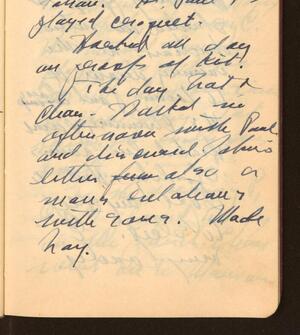 played croquet.
Worked all day
on proofs of
The day hot &
clear. Walked in
afternoon with Paul
and discussed John's
letter also a
man's relations
with sons. Made
hay.